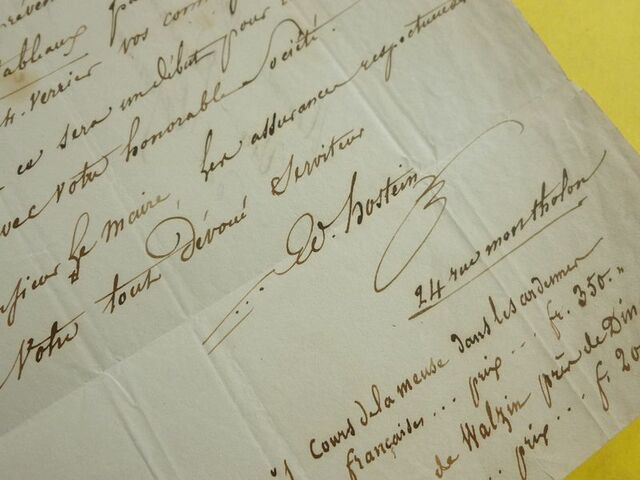 tableaux
Verrier vos
ce sera un début pour
avec votre honorable Société.
Monsieur Le Maire, les assurances respectueuses
Votre tout Dévoué Serviteur
Ed. hostein
24 rue montholon
1 cours de la meuse dans les ardennes
françaises ... prix ... fr. 350.
de Walzin près de Din
prix ... f. 20